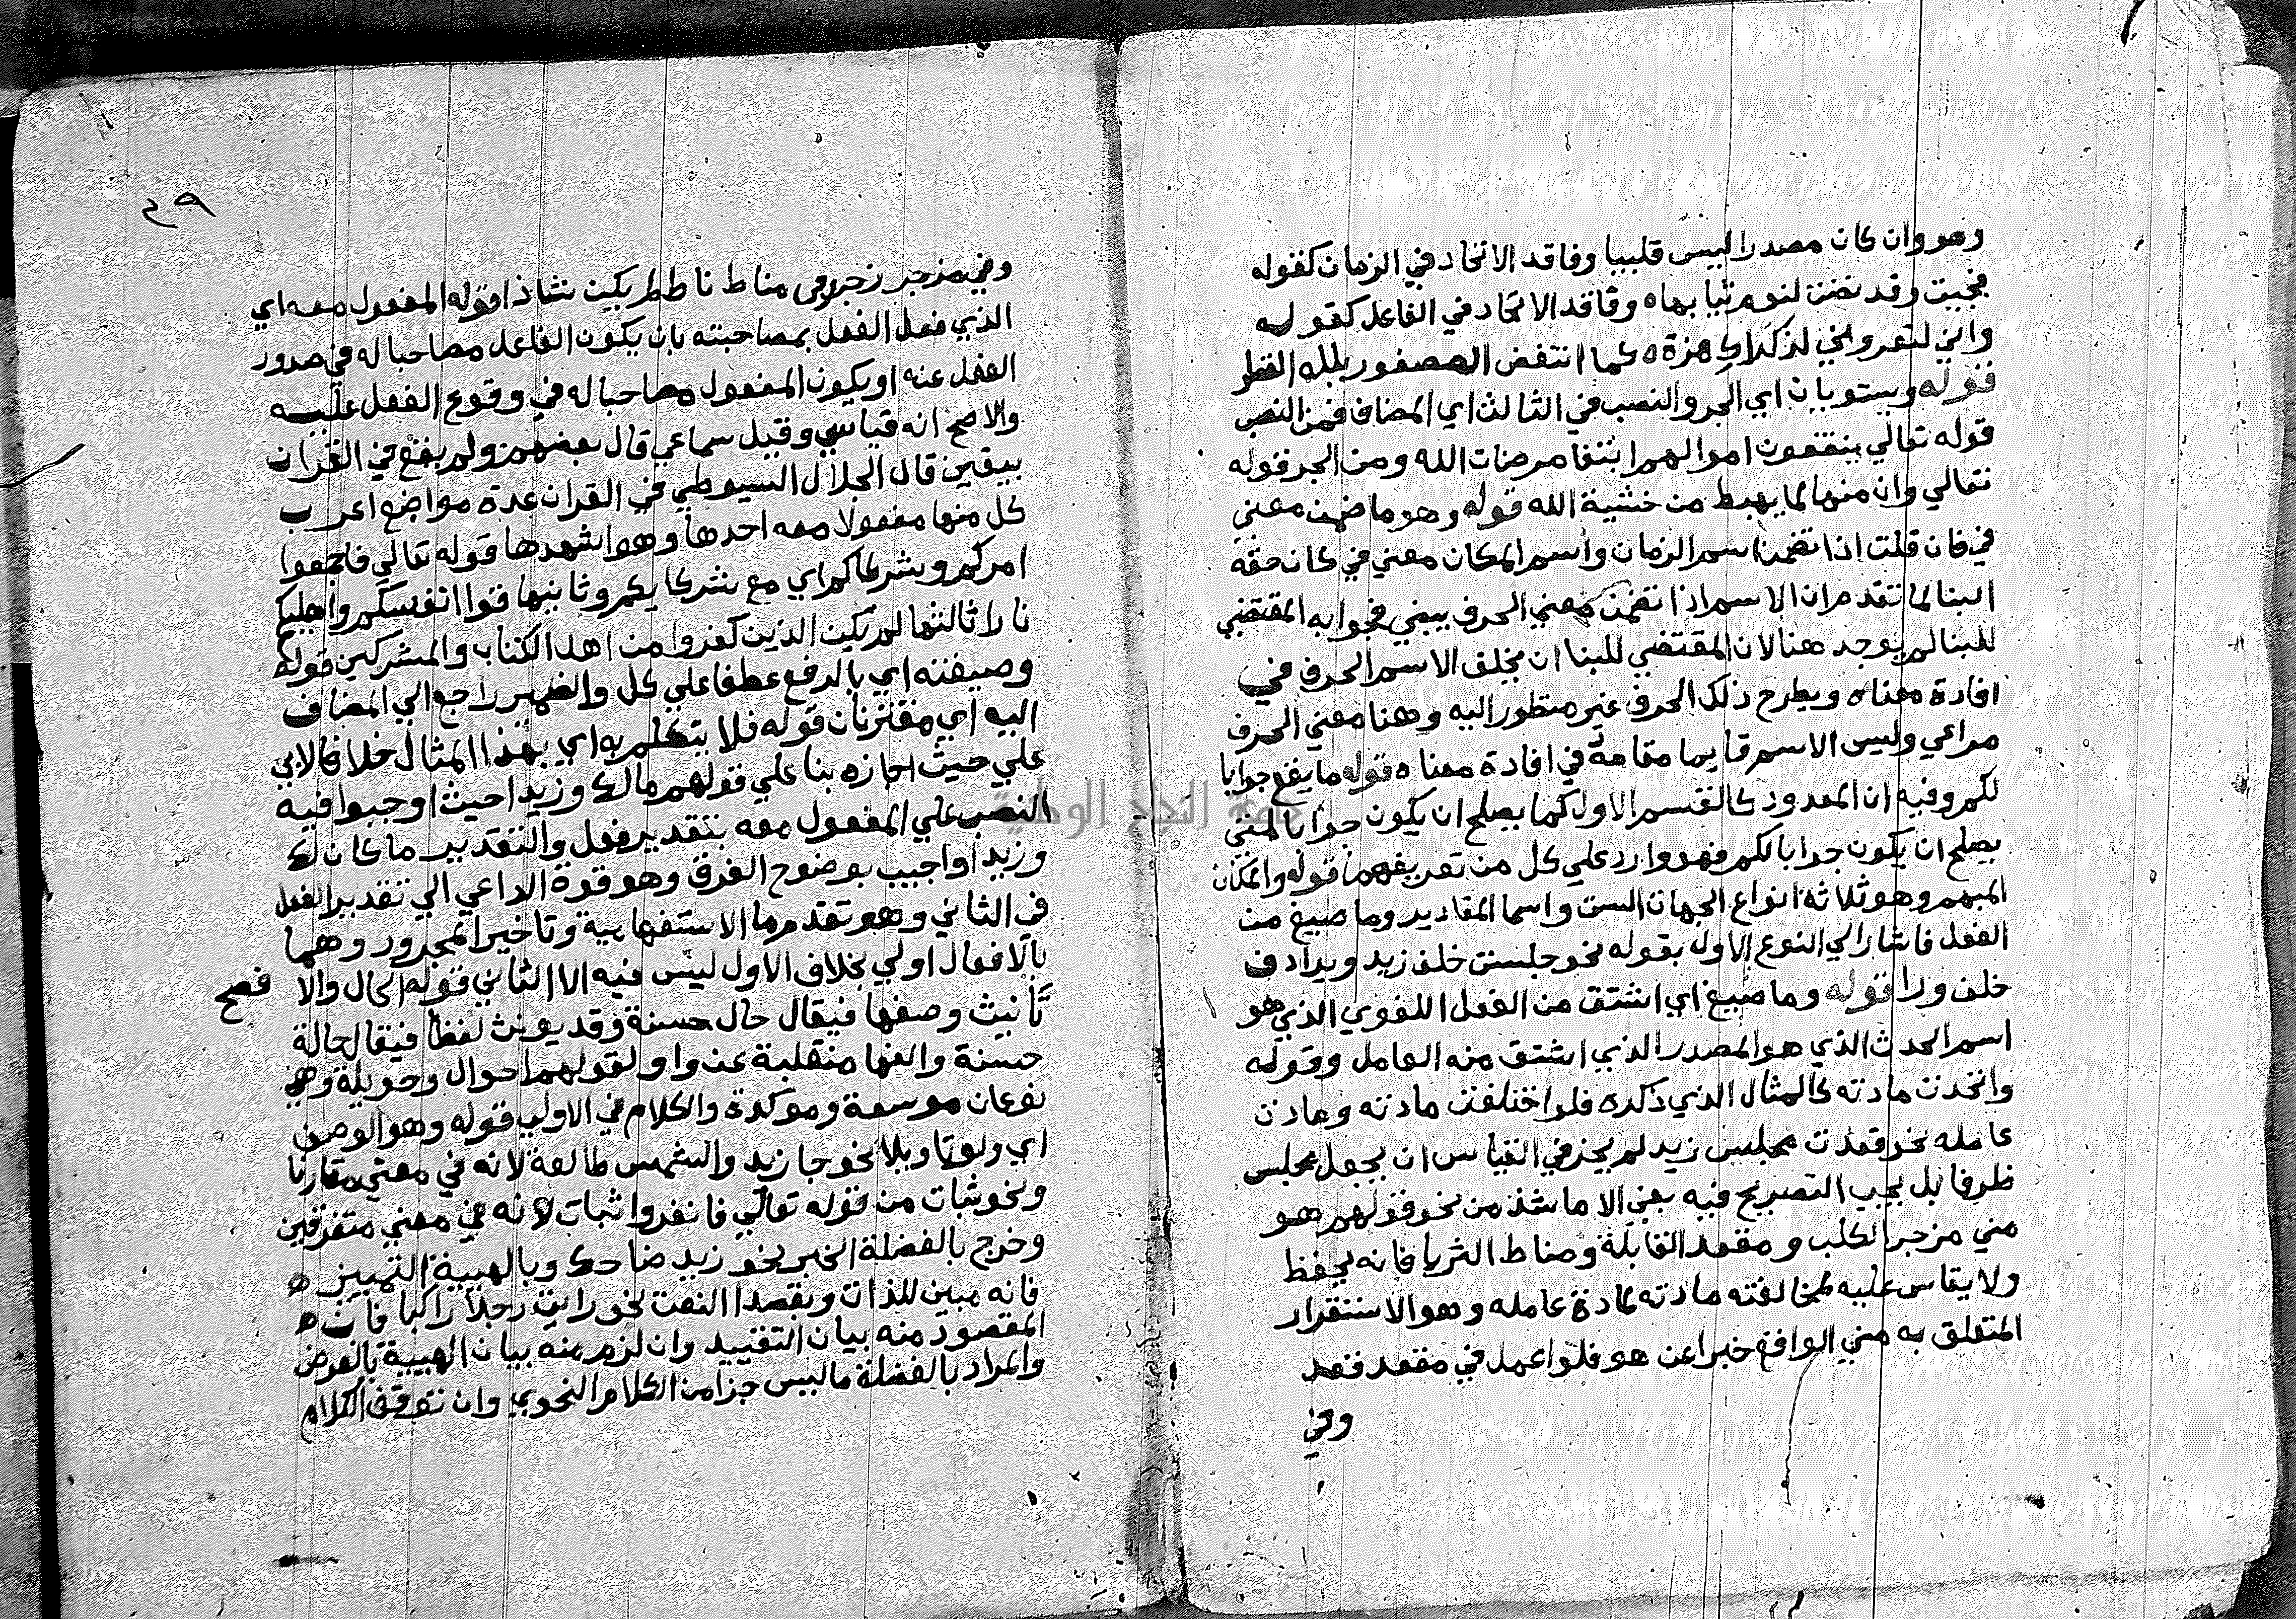 وهو وان كان مصدرا ليس قلبيا وفاقد الاتحاد في الزمان كقوله
فجيت وقد نضت لنوم ثيابها ه وفاقد الاتحاد في الفاعل كقوله
واني لتعروني لذكراك هزة ه كما انتفض العصفور بلله القطر
قوله ويستويان اي الجر والنصب في الثالث اي المضاف فمن النصب
قوله تعالي ينفقون اموالهم ابتغا مرضات الله ومن الجر قوله
تعالي وان منها لما يهبط من خشية الله قوله وهو ما ضمن معني
في فان قلت اذا تضمن اسم الزمان واسم المكان معني في كان حقه
البنا لما تقدم ان الاسم اذا تضمن معني الحرف يبني فجوابه المقتضي
للبنا لم يوجد هنا لان المقتضي للبنا ان يخلف الاسم الحرف في
افادة معناه ويطرح ذلك الحرف غير منظور اليه وهنا معني الحرف
مراعي وليس الاسم قايما مقامه في افادة معناه قوله ما يقع جوابا
لكم وفيه ان المعدود كالقسم الاول كما يصلح ان يكون جوابا لمتي
يصلح ان يكون جوابا لكم فهو وارد علي كل من تعريفهما قوله والمكان
المبهم وهو ثلاثة انواع الجهات الست واسما المقادير وما صيغ من
الفعل فاشار الي النوع الاول بقوله نحو جلست خلف زيد ويرادف
خلف ورا قوله وما صيغ اي اشتق من الفعل اللغوي الذي هو
اسم الحدث الذي هو المصدر الذي اشتق منه العامل وقوله
واتحدت مادته كالمثال الذي ذكره فلو اختلفت مادته ومادت
عامله نحو قعدت مجلس زيد لم يجز في القياس ان يجعل مجلس
ظرفا بل يجب التصريح فيه بفي الا ما شذ من نحو قولهم هو
مني مزجر الكلب ومقعد القابلة ومناط الثريا فانه يحفظ
ولا يقاس عليه لمخالفته مادته لمادة عامله وهو الاستقرار
المتعلق به مني الواقع خبرا عن هو فلو اعمل في مقعد قعد
وفي
٢٩
وفي مزجر زجر وفي مناط ناط لم يكن شاذا قوله المفعول معه اي
الذي فعل الفعل بمصاحبته بان يكون الفاعل مصاحبا له في صدور
الفعل عنه او يكون المفعول مصاحبا له في وقوع الفعل عليه
والاصح انه قياسي وقيل سماعي قال بعضهم ولم يقع في القران
بيقين قال الجلال السيوطي في القران عدة مواضع اعرب
كل منها مفعولا معه احدها وهو اشهرها قوله تعالي فاجمعوا
امركم وشركاكم اي مع شركايكم وثانيها قوا انفسكم واهليكم
نارا ثالثها لم يكن الذين كفروا من اهل الكتاب والمشركين قوله
وضيفته اي بالرفع عطفا علي كل والضمير راجع الي المضاف
اليه اي مقترنان قوله فلا يتكلم به اي بهذا المثال خلافا لابي
علي حيث اجازه بنا علي قولهم مالك وزيدا حيث اوجبوا فيه
النصب علي المفعول معه بتقدير فعل والتقدير ما كان لك
وزيدا واجيب بوضوح الفرق وهو قوة الداعي الي تقدير الفعل
في الثاني وهو تقدم ما الاستفهامية وتاخير المجرور وهما
بالافعال اولي بخلاف الاول ليس فيه الا الثاني قوله الحال والا فصح
تأنيث وصفها فيقال حال حسنة وقد يونث لفظا فيقال حالة
حسنة والفها منقلبة عن واو لقولهم احوال وحويلة وهي
نوعان موسسة وموكدة والكلام في الاولي قوله وهو الوصف
اي ولو تاويلا نحو جا زيد والشمس طالعة لانه في معني مقارنا
ونحو ثبات من قوله تعالي فانفروا ثبات لانه في معني متفرقين
وخرج بالفضلة الخبر نحو زيد ضاحك وبالهيية التمييز ه
فانه مبين للذات وبقصدا النعت نحو رايت رجلا راكبا فان ه
المقصود منه بيان التقييد وان لزم منه بيان الهيية بالعرض
والمراد بالفضلة ما ليس جزا من الكلام النحوي وان توقف الكلام
جامعة النجاح الوطنية